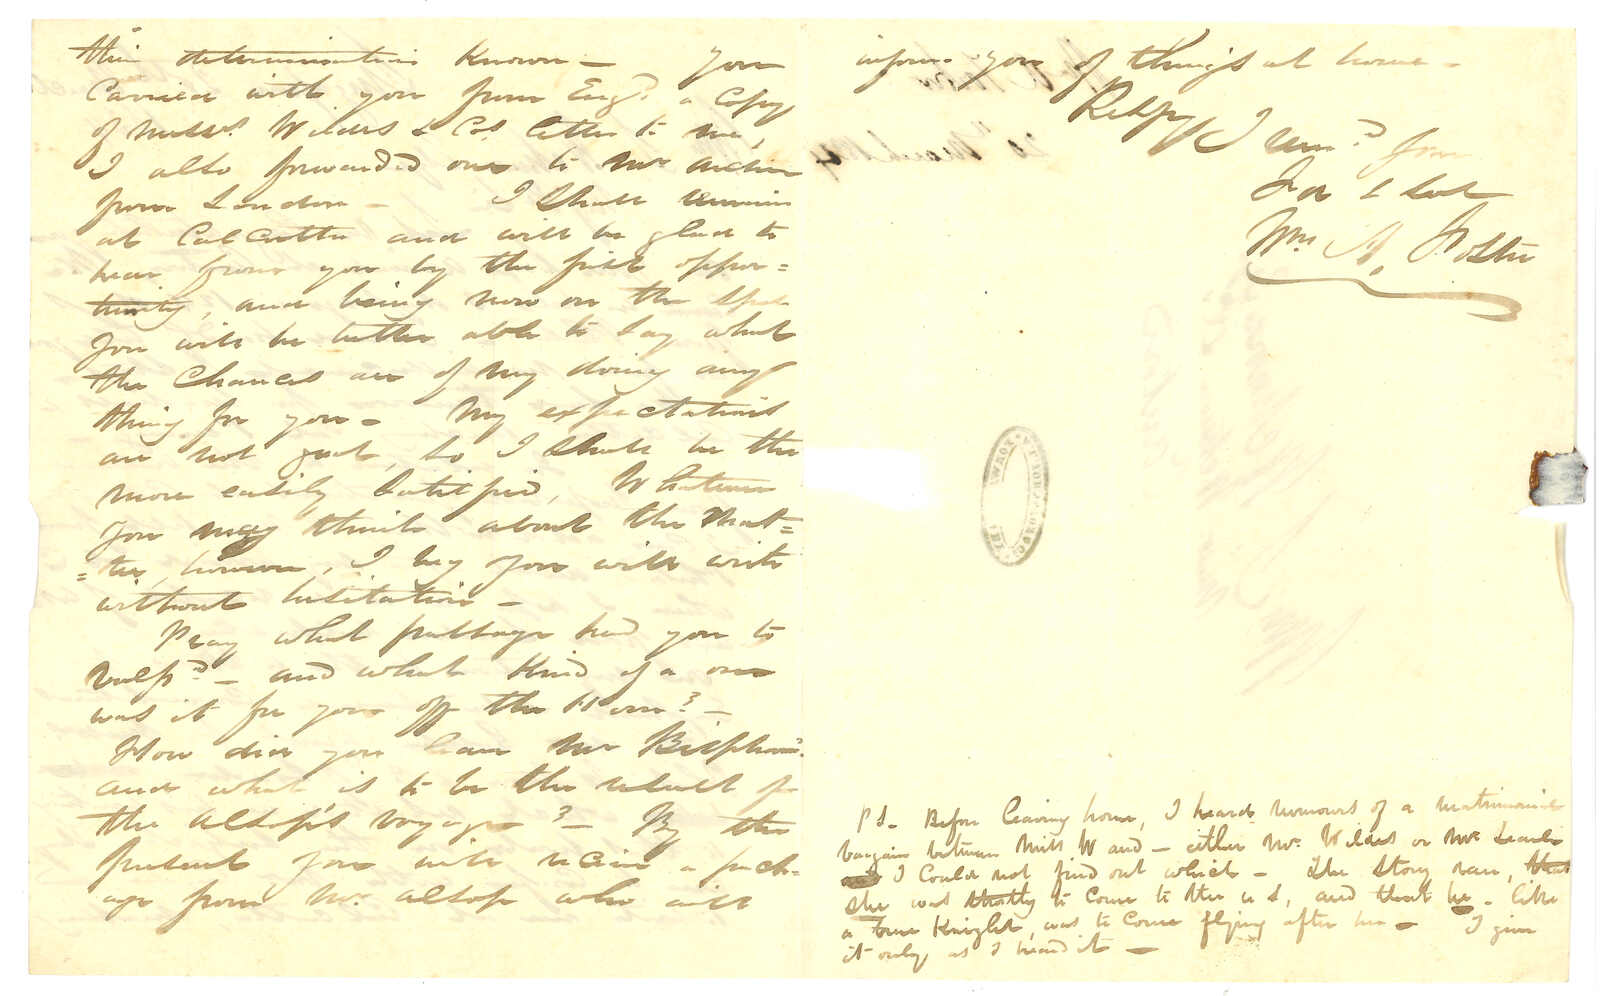 their determination known — You
carried with you from Engd a copy
of Messrs. Wildes & Cos letter to me,
I also forwarded one to Mr
from London — I shall remain
at Calcutta and will be glad to
hear from you by the first oppor=
tunity, and being now on the spot
you will be better able to say what
the chances are of my doing any
thing for you — My expectations
are not great, so I shall be the
more easily satisfied, Whatever
you may think about the mat=
=ter, however, I beg you will write
without hesitation —
Pray what passage had you to
Valpso — and what kind of a one
was it for you off the Horn? —
How did you leave Mr Bispham.
and what is to be the result of
the Alsop's voyage? — By the
present you will receive a pack-
age from Mr. Alsop who will
inform you of things at home —
Respy I remd your
fr & Svt
Wm A. Foster
THE
PS — Before leaving home, I heard rumours of a matrimonial
bargain between Miss W and — either Mr. Wildes or Mr Searle
I could not find out which — The story ran, that
she was shortly to come to the U S, and that he — like
a true Knight, was to come flying after her — I give
it only as I heard it —